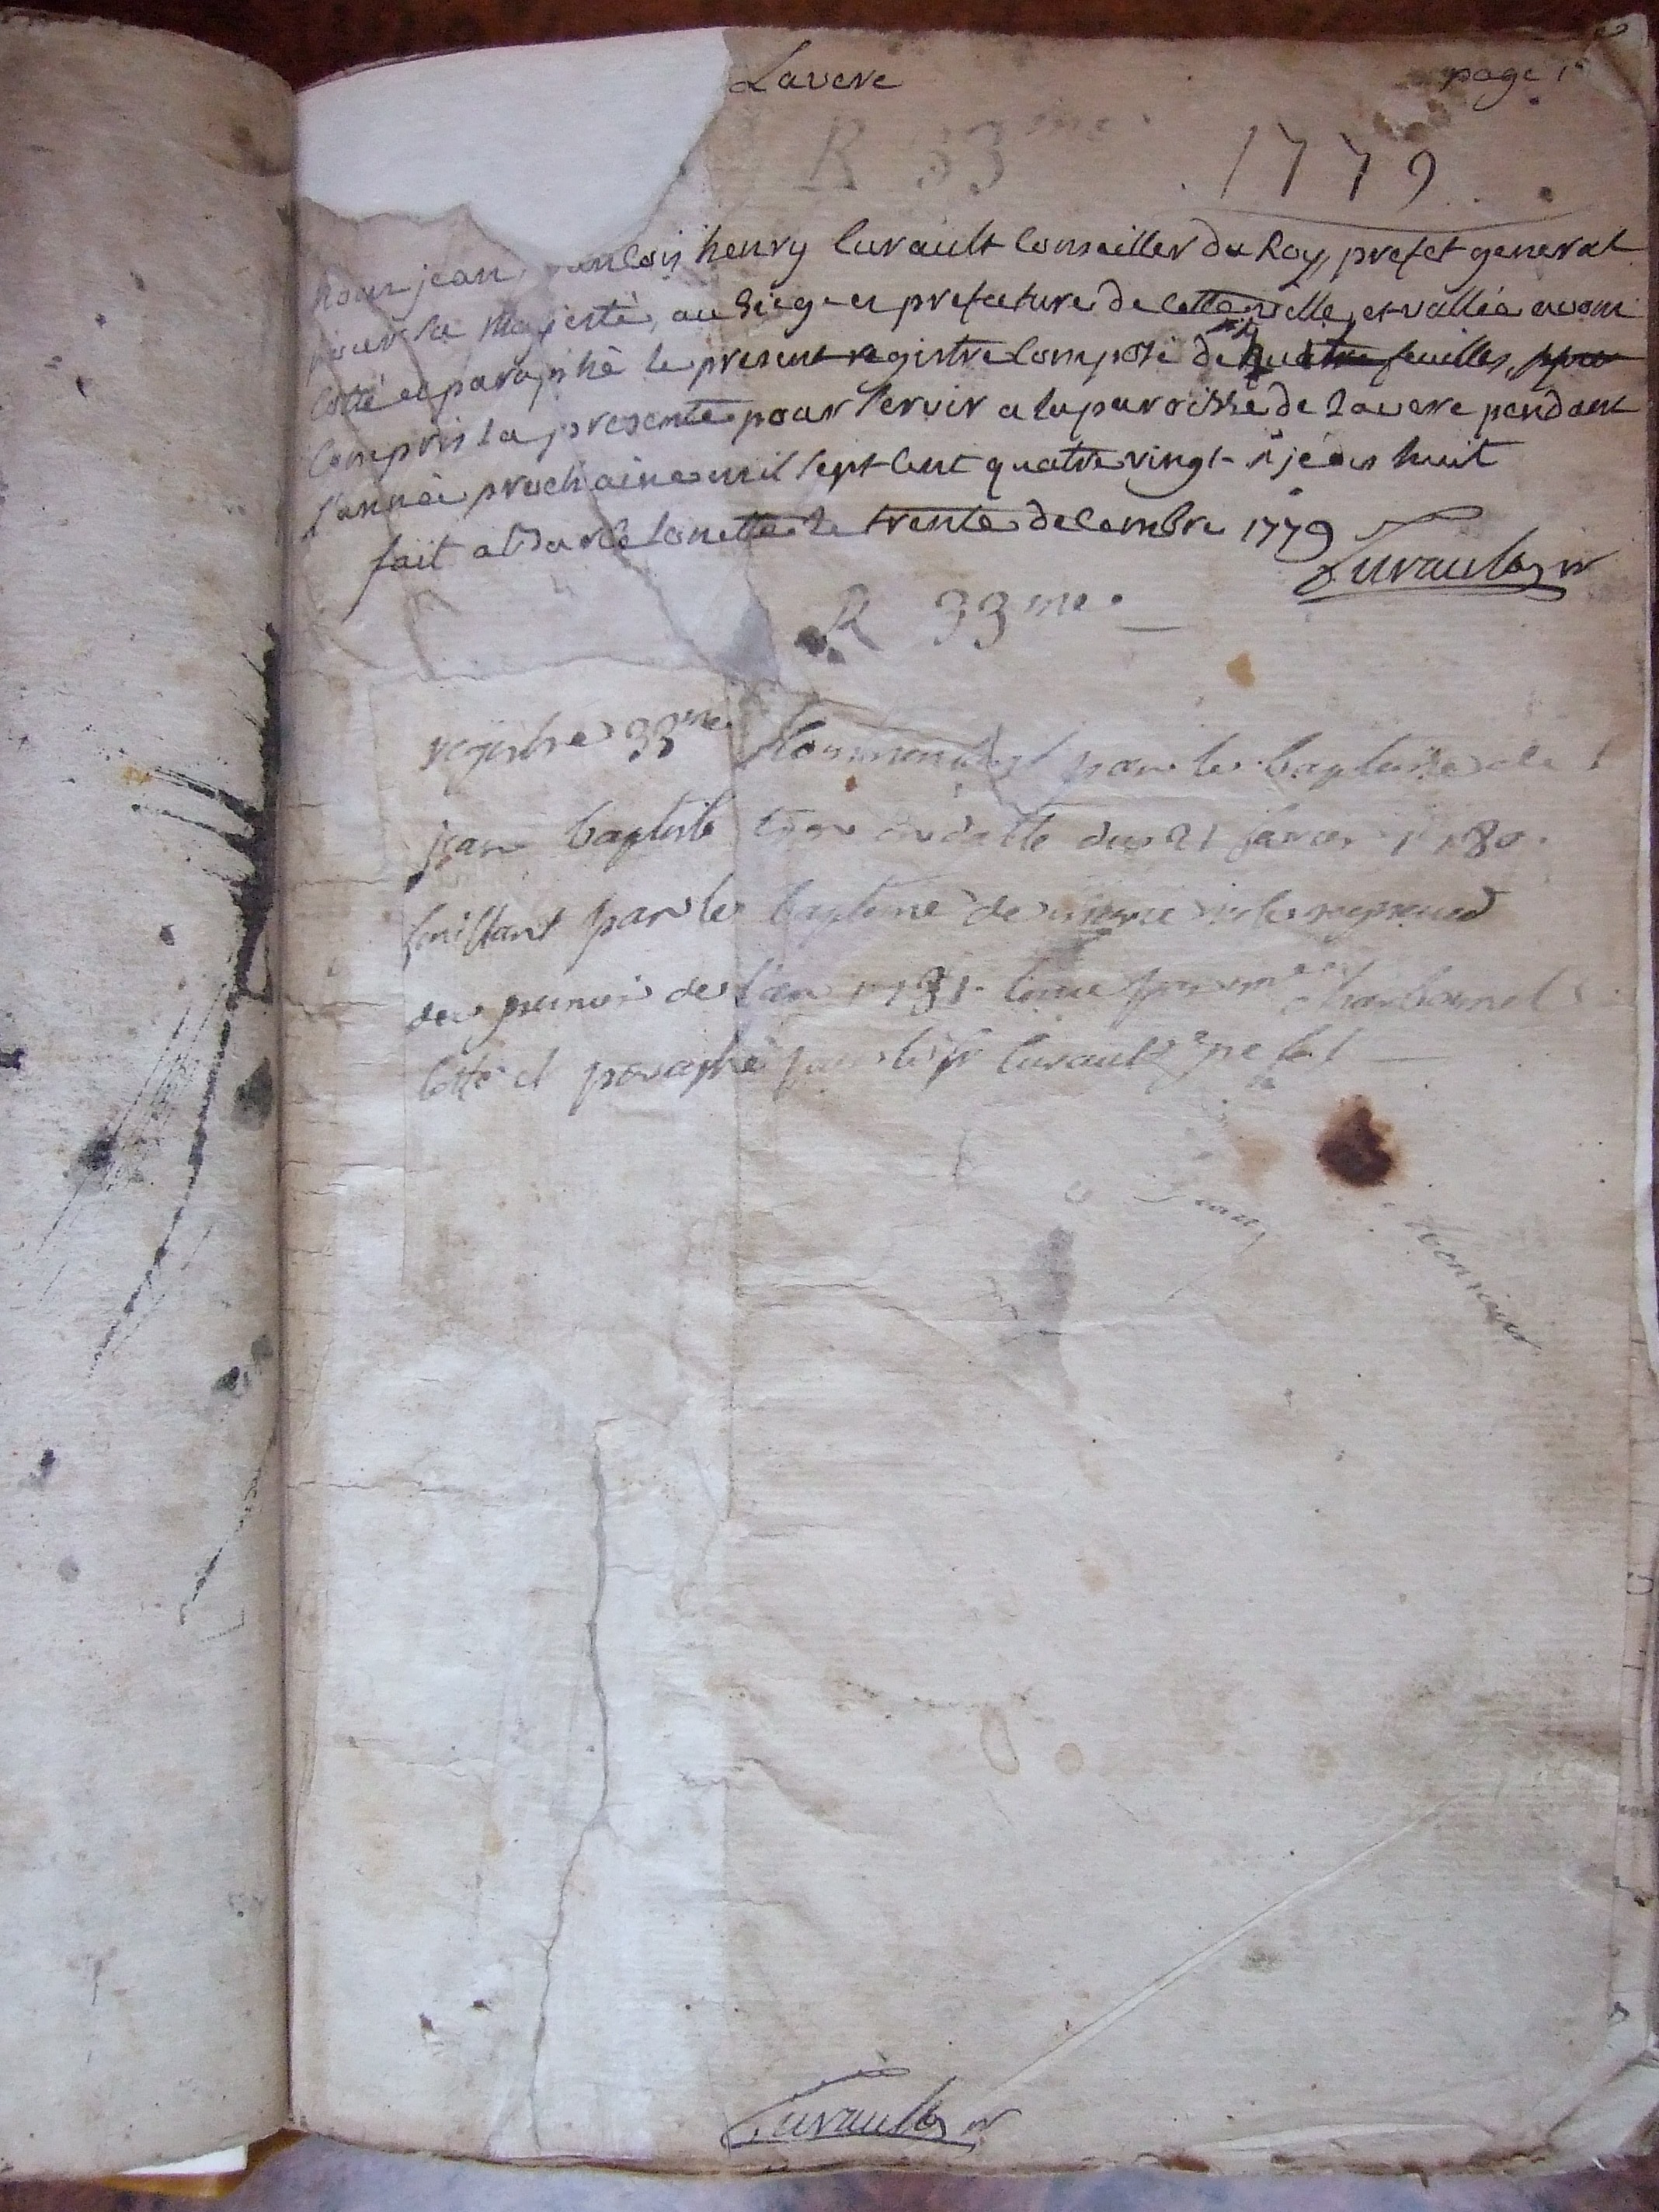 Lavere page 1
R 33me
1779
Nous jean henry Curault Conseiller du Roy, prefet general
pour sa Majesté, au Siege et prefecture de cette ville, et vallée avons
cotté et paraphé le present registre composé de feuilles,
Compris la presente pour servir a la paroisse de Lavere pendant
l'année prochaine mil sept cent quatre vingt
fait a Barcelonette le trente decembre 1779
Curault
R 33me.
registre 33me Commençant par le baptême de
jean baptiste en datte du 21 janvier 1780.
finissant par le baptême de
du de l'an 1781. par mre
cotté et paraphé par le sr Curault prefet
Curault